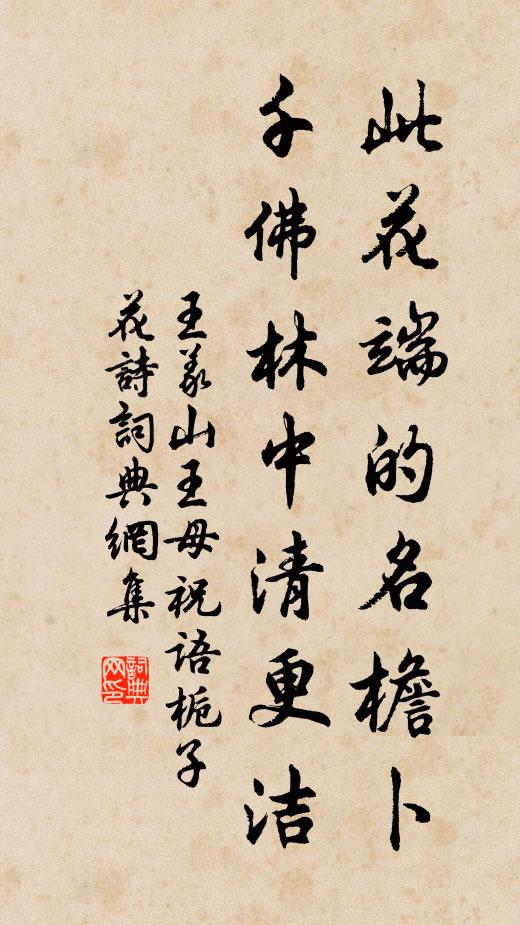 此花端的名檐卜
千佛林中清更洁
王义山王母祝语栀子
花詩詞典網集
詞典网印